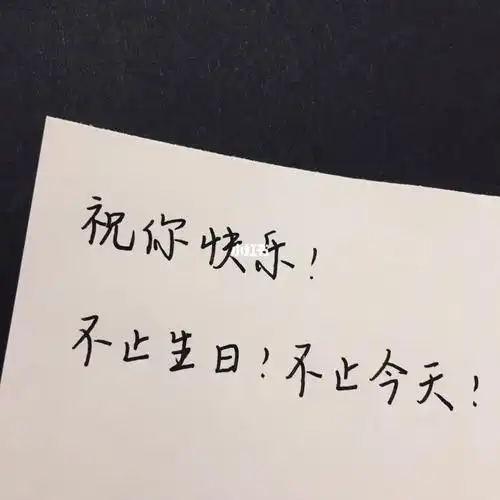 祝你快乐!
不止生日!不止今天!